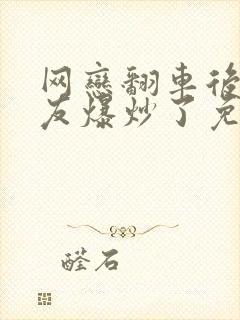 网戀翻車後
友爆炒了免
醛石